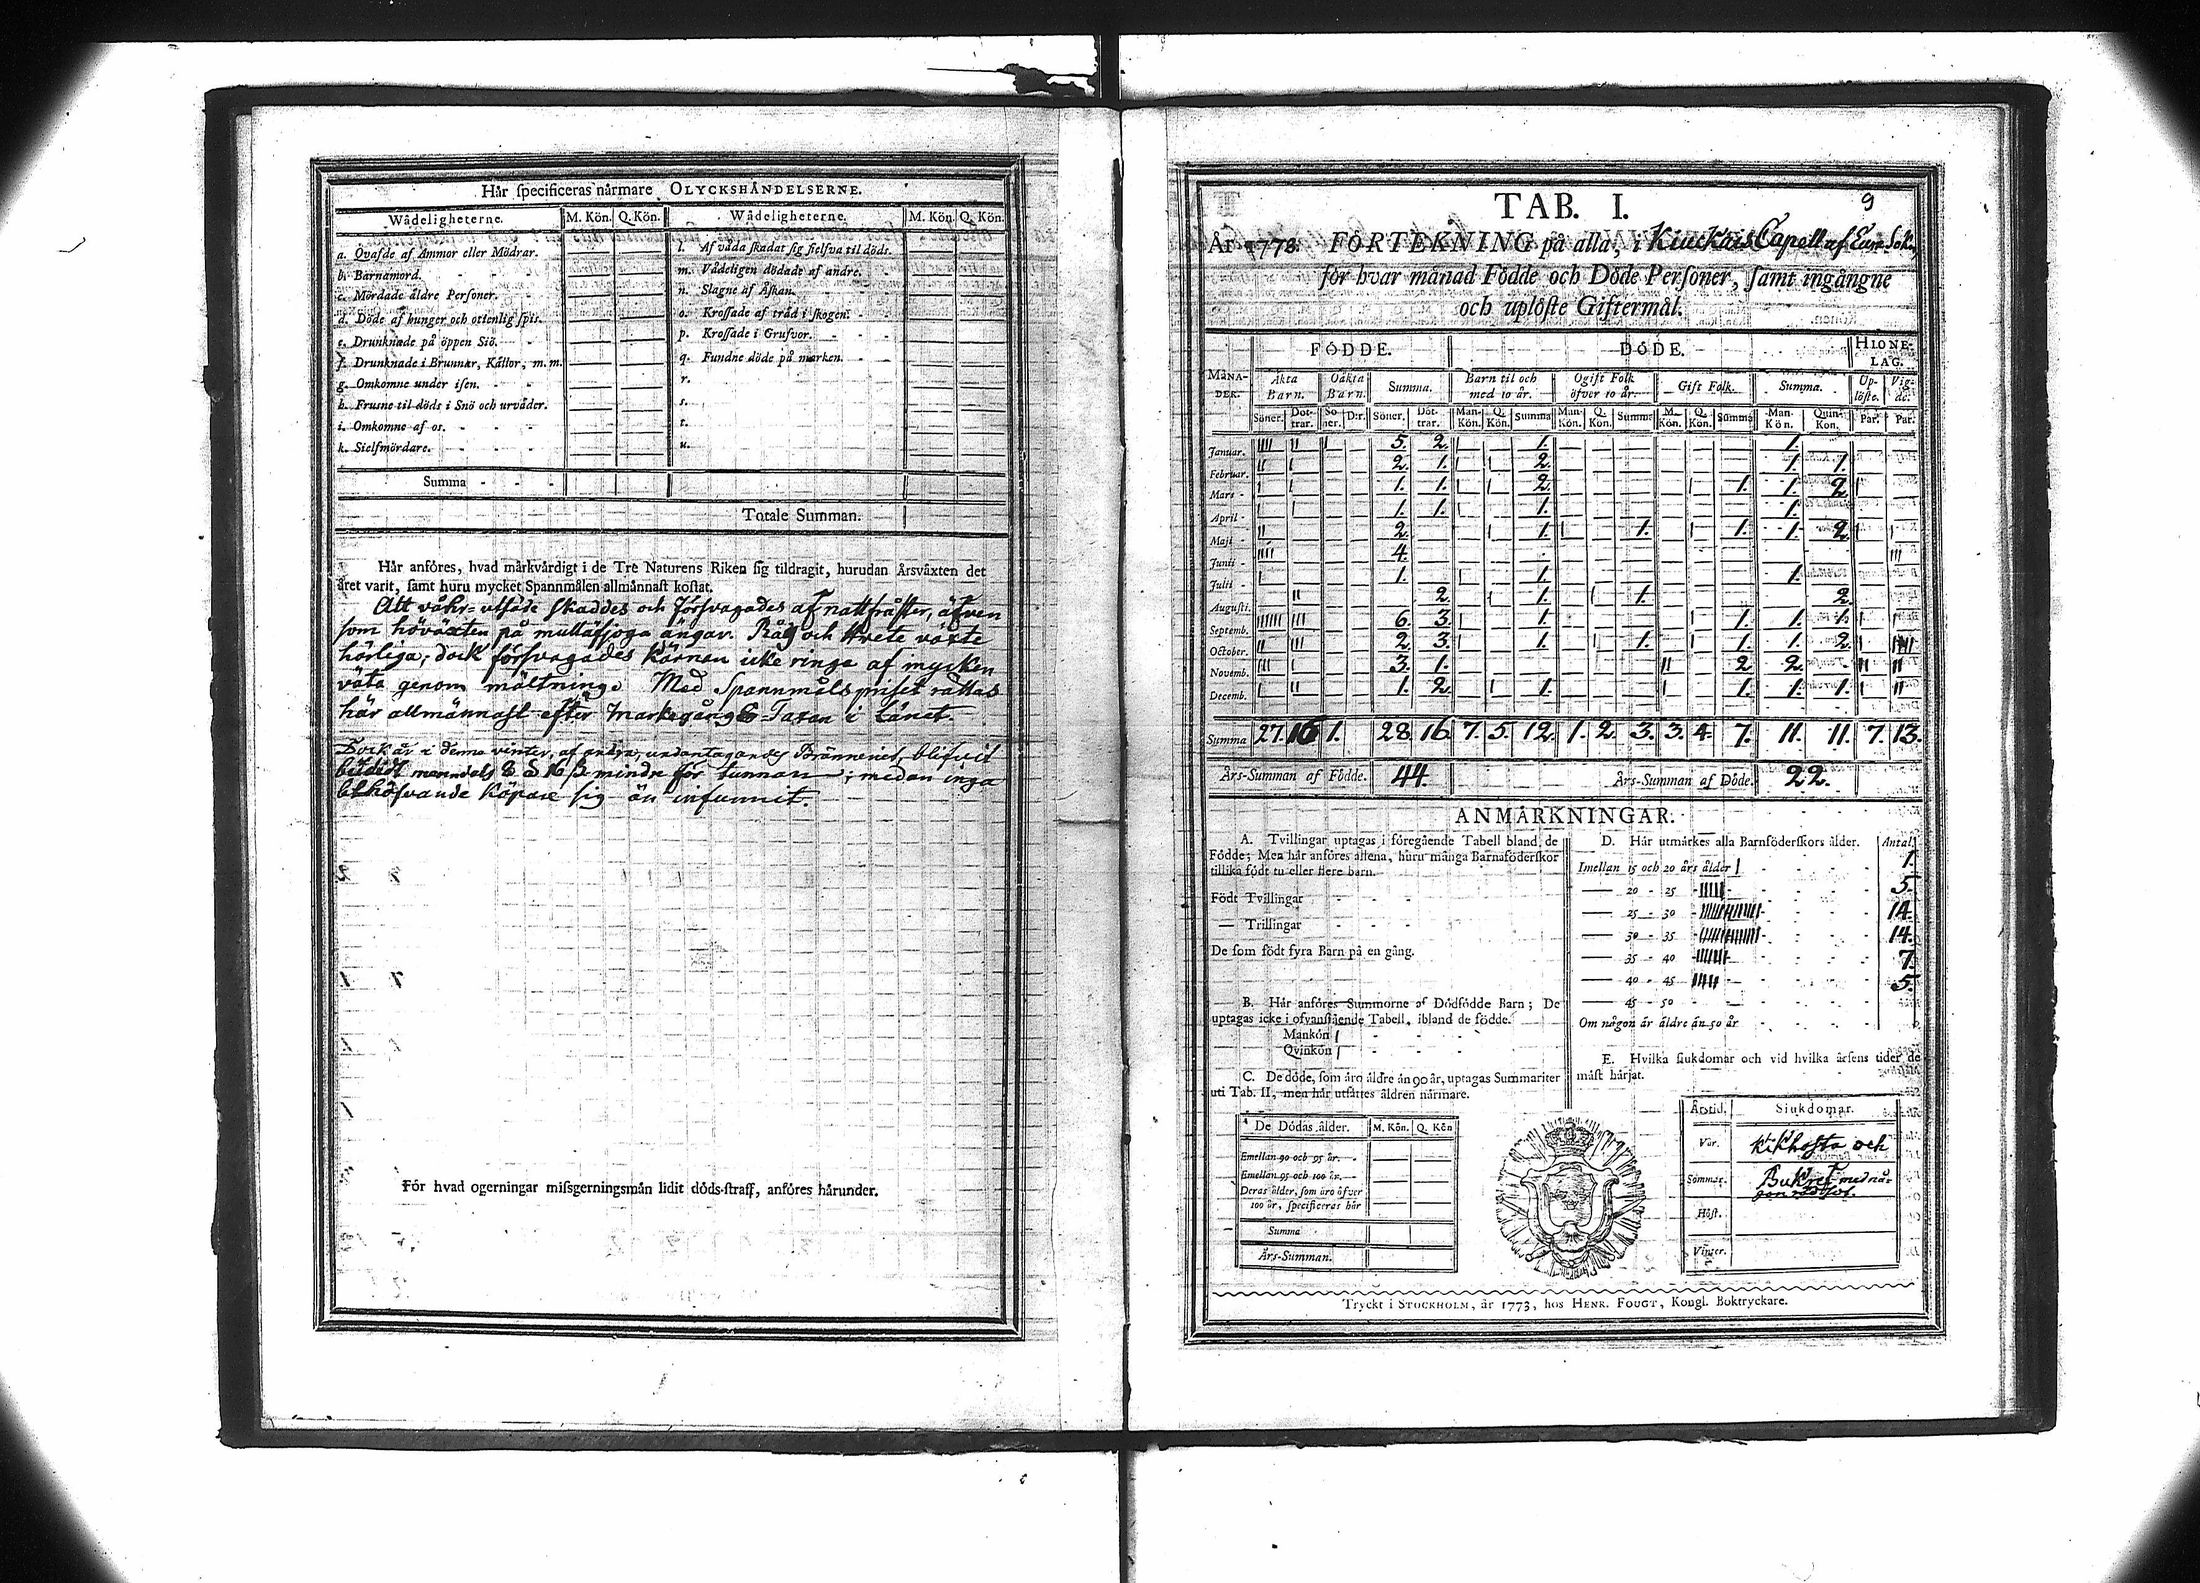 Hår specificeras nårmare OLYCKSHÅNDELSERNE.
Wådeligheterne. M. Kön. Q. Kön. Wådeligheterne. M. Kön. Q. Kön.
a. Qvafde af Ammor eller Mödrar.
b. Barnamord.
c. Mördade åldre Personer.
d. Döde af hunger och otienlig spis.
e. Drunknade på öppen Siö.
f. Drunknade i Brunnar, Kållor, m. m.
g. Omkomne under isen.
h. Frusne til döds i Snö och urvåder.
i. Omkomne af os.
k. Sielfmördare.
l. Af våda skadat sig sielfva til döds.
m. Vådeligen dödade af andre.
n. Slagne af Åskan.
o. Krossade af tråd i skogen.
p. Krossade i Grufvor.
q. Fundne döde på marken.
r.
s.
t.
u.
Summa
Totale Summan.
Hår anföres, hvad mårkvårdigt i de Tre Naturens Riken sig tildragit, hurudan Årsvåxten det
året varit, samt huru mycket Spannmålen allmånnast kostat.
Att våhr-utsäde skaddes och försvagades af nattfråster, äfven
som höväxten på mullaftoga ängar. Råg och Hvete växte
härliga; dock försvagades Kärnan icke ringa af mycken
väta genom mältning. Med Spannmåls priset rättas
här allmännast efter Markegångs-Taxan i Länet.
Dock är i denna vinter, af andra, undantagandes Bränneriet, blifvit
budit 16 ß mindre för tunnan; medan inga
behöfvande Köpare sig än infunnit.
För hvad ogerningar missgerningsmån lidit döds-straff, anföres hårunder.
TAB. I. 9
År 1778. FÖRTEKNING på alla, i Kiuckais Capell af Eura Sokn,
för hvar månad Födde och Döde Personer, samt ingångne
och uplöste Giftermål.
MÅNADER. FÖDDE. DÖDE. HIONELAG.
Äkta Barn. Oäkta Barn. Summa. Barn til och med 10 år. Ogift Folk öfver 10 år. Gift Folk. Summa. Uplöste. Vigde.
Söner. Döttrar. Söner. D:r. Söner. Döttrar. ManKön. Q. Kön. Summa ManKön. Q. Kön. Summa M. Kön. Q. Kön. Summa ManKön. QuinKon. Par. Par.
Januar. |||| || | 5. 2. | 1. 1.
Februar. || | 2. 1. | | 2. 1. 1.
Mars | | 1. 1. | | 2. | 1. 1. 2. |
April | | 1. 1. | 1. 1.
Maji || 2. | 1. | 1. | 1. 1. 2. | |
Junii |||| 4. |||
Julii | 1. | 1. 1.
Augusti. || 2. | 1. | 1. 2.
Septemb. |||||| ||| 6. 3. | 1. | 1. 1. 1. |
October. || ||| 2. 3. | 1. | 1. | 1. 1. 2. |
Novemb. ||| | 3. 1. || 2 2. || ||
Decemb. | || 1. 2. | 1. | 1. 1. 1. | ||
Summa 27. 16 1. 28. 16. 7. 5. 12. 1. 2. 3. 3. 4. 7. 11. 11. 7. 13.
Års-Summan af Födde. 44. Års-Summan af Döde. 22.
ANMÅRKNINGAR.
A. Tvillingar uptagas i föregående Tabell bland de
Födde; Men hår anföres allena, huru många Barnaföderskor
tillika födt tu eller flere barn.
Födt Tvillingar
— Trillingar
De som födt fyra Barn på en gång.
B. Hår anföres Summorne af Dödfödde Barn; De
uptagas icke i ofvanstående Tabell, ibland de födde.
Mankön |
Qvinkön |
C. De döde, som åro åldre ån 90 år, uptagas Summariter
uti Tab. II, men hår utsåttes åldren nårmare.
De Dödas ålder. M. Kön. Q. Kön
Emellan 90 och 95 år.
Emellan 95 och 100 år.
Deras ålder, som åro öfver
100 år, specificeras hår
Summa
Års-Summan.
D. Hår utmårkes alla Barnföderskors ålder. Antal.
Imellan 15 och 20 års ålder | 1.
— 20 - 25 ||||| 5.
— 25 - 30 |||||||||||||| 14.
— 30 - 35 |||||||||||||| 14.
— 35 - 40 ||||||| 7.
— 40 - 45 ||||| 5.
— 45 - 50
Om någon år åldre ån 50 år
E. Hvilka siukdomar och vid hvilka årsens tider de
måst hårjat.
Årstid. Siukdomar.
Vår. Kikhosta och
Sommar. Bukref med någon rödsot.
Höst.
Vinter.
Tryckt i STOCKHOLM, år 1773, hos HENR. FOUGT, Kongl. Boktryckare.